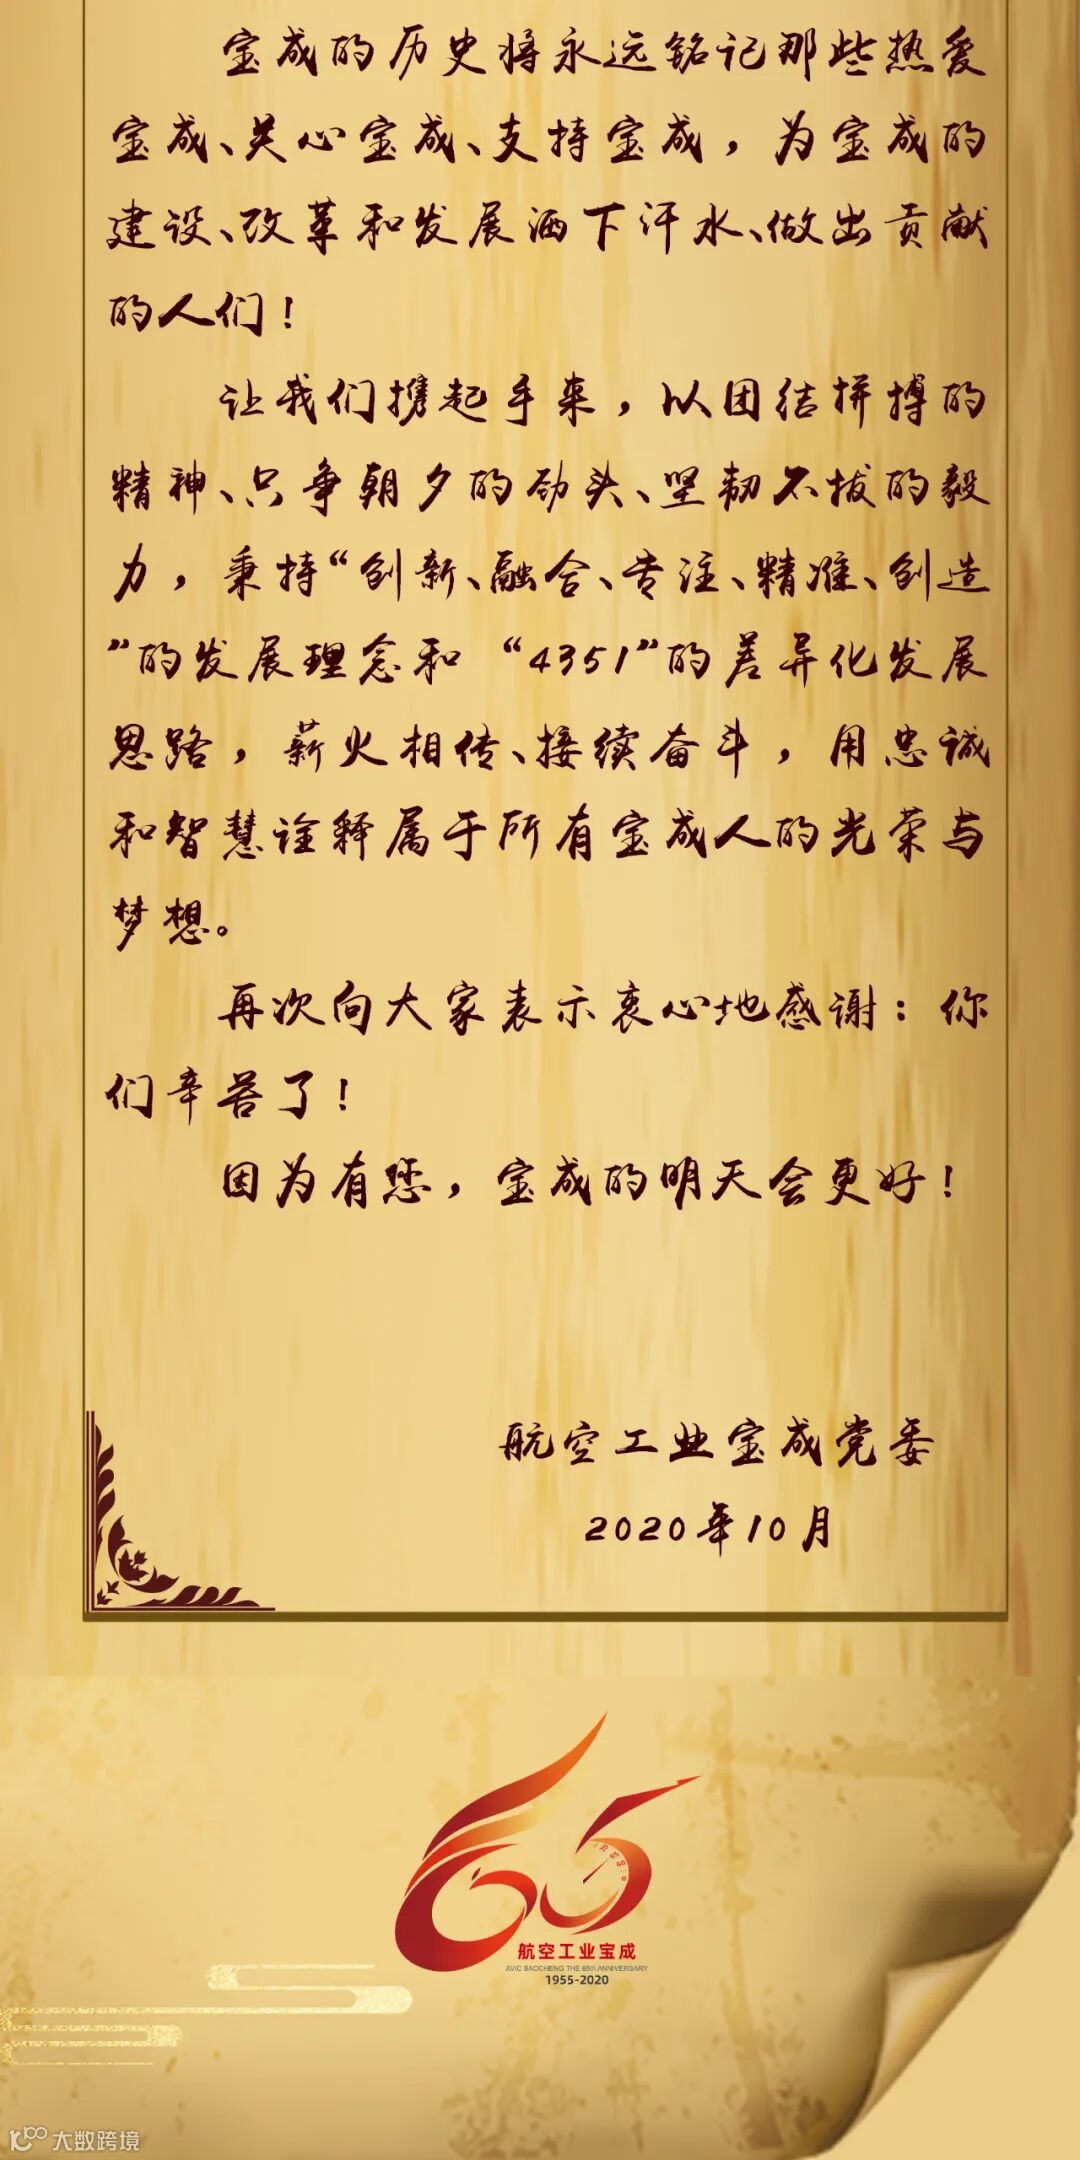 宝成的历史将永远铭记那些热爱
宝成、关心宝成、支持宝成，为宝成的
建设、改革和发展洒下汗水、做出贡献
的人们！
让我们携起手来，以团结拼搏的
精神、只争朝夕的劲头、坚韧不拔的毅
力，秉持“创新、融合、专注、精准、创造
”的发展理念和“4351”的差异化发展
思路，薪火相传、接续奋斗，用忠诚
和智慧诠释属于所有宝成人的光荣与
梦想。
再次向大家表示衷心地感谢：你
们辛苦了！
因为有您，宝成的明天会更好！
航空工业宝成党委
2020年10月
航空工业宝成
AVIC BAOCHENG THE 65th ANNIVERSARY
1955-2020
大数跨境